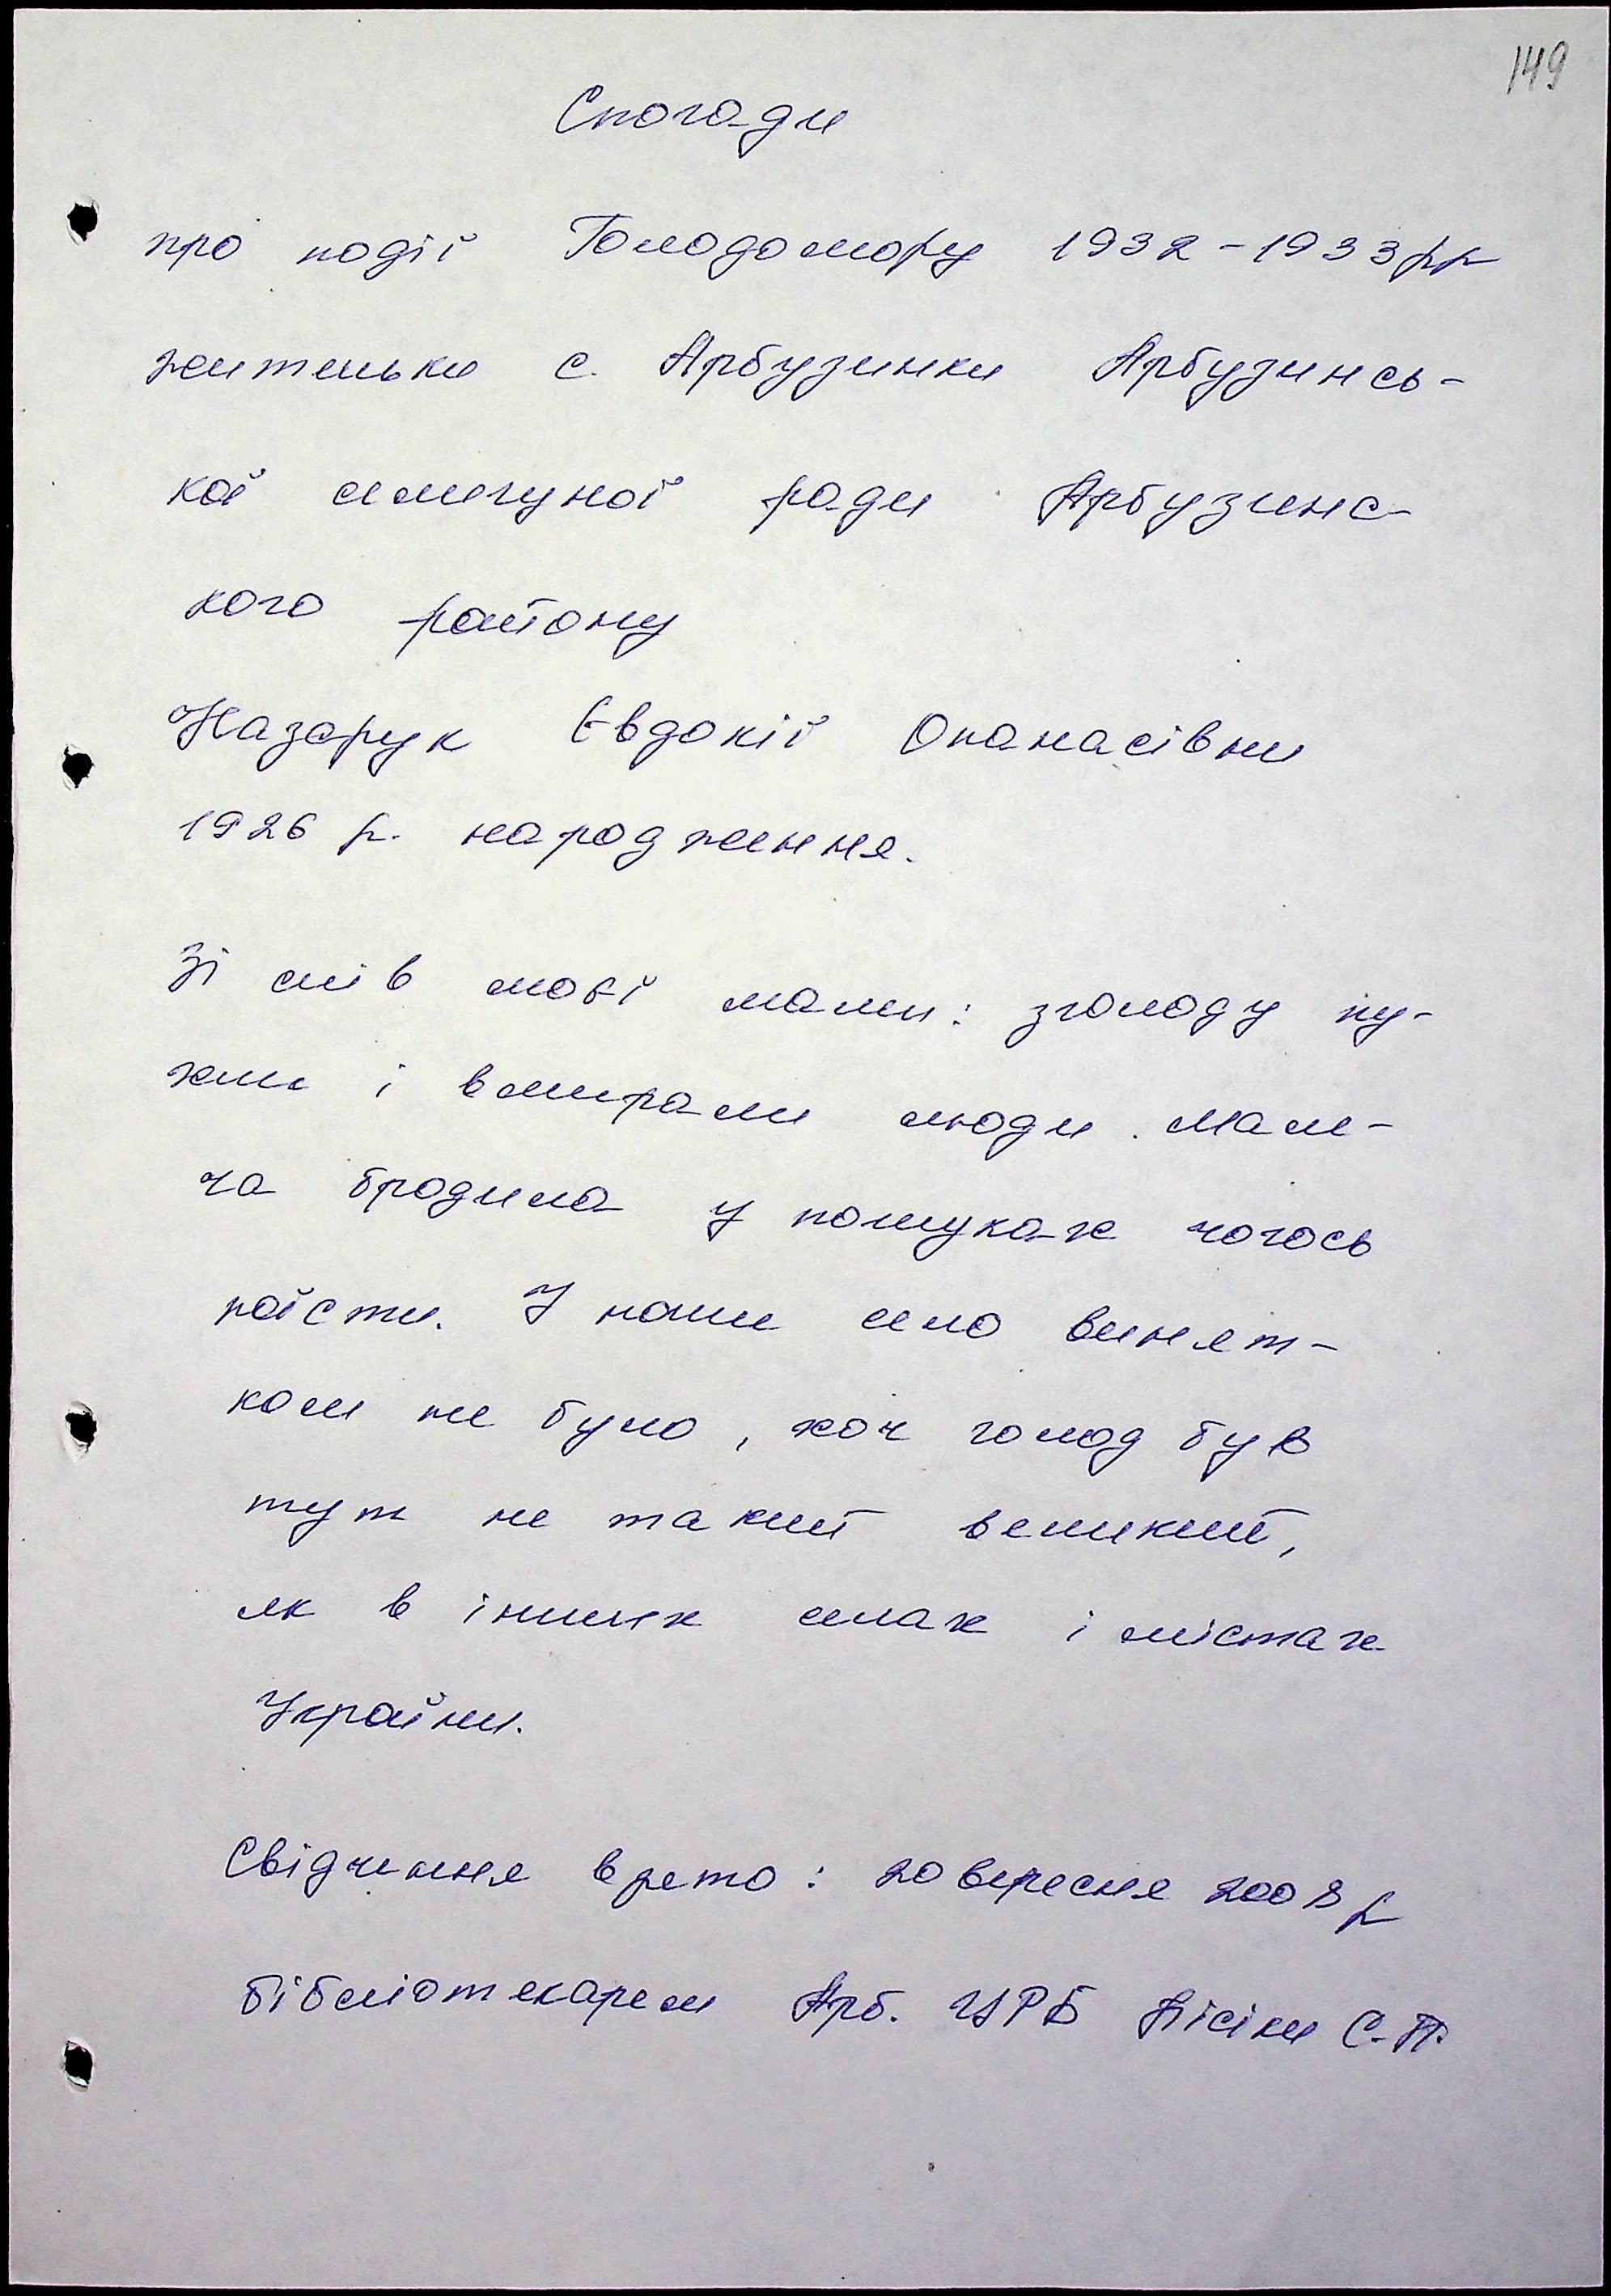 149
Спогади
про події Голодомору 1932-1933рр
жительки с. Арбузинки Арбузинсь-
кої селищної ради Арбузинс-
кого району
Назарук Євдокії Опанасівни
1926 р. народження.
Зі слів моєї мами: з голоду пу-
хли і вмирали люди. Мам-
ча бродила у пошуках чогось
поїсти. І наше село винят-
ком не було, хоч голод був
тут не такий великий,
як в інших селах і містах
України.
Свідчення взято: 20 вересня 2008 р
бібліотекарем Арб. ЦРБ С.П.